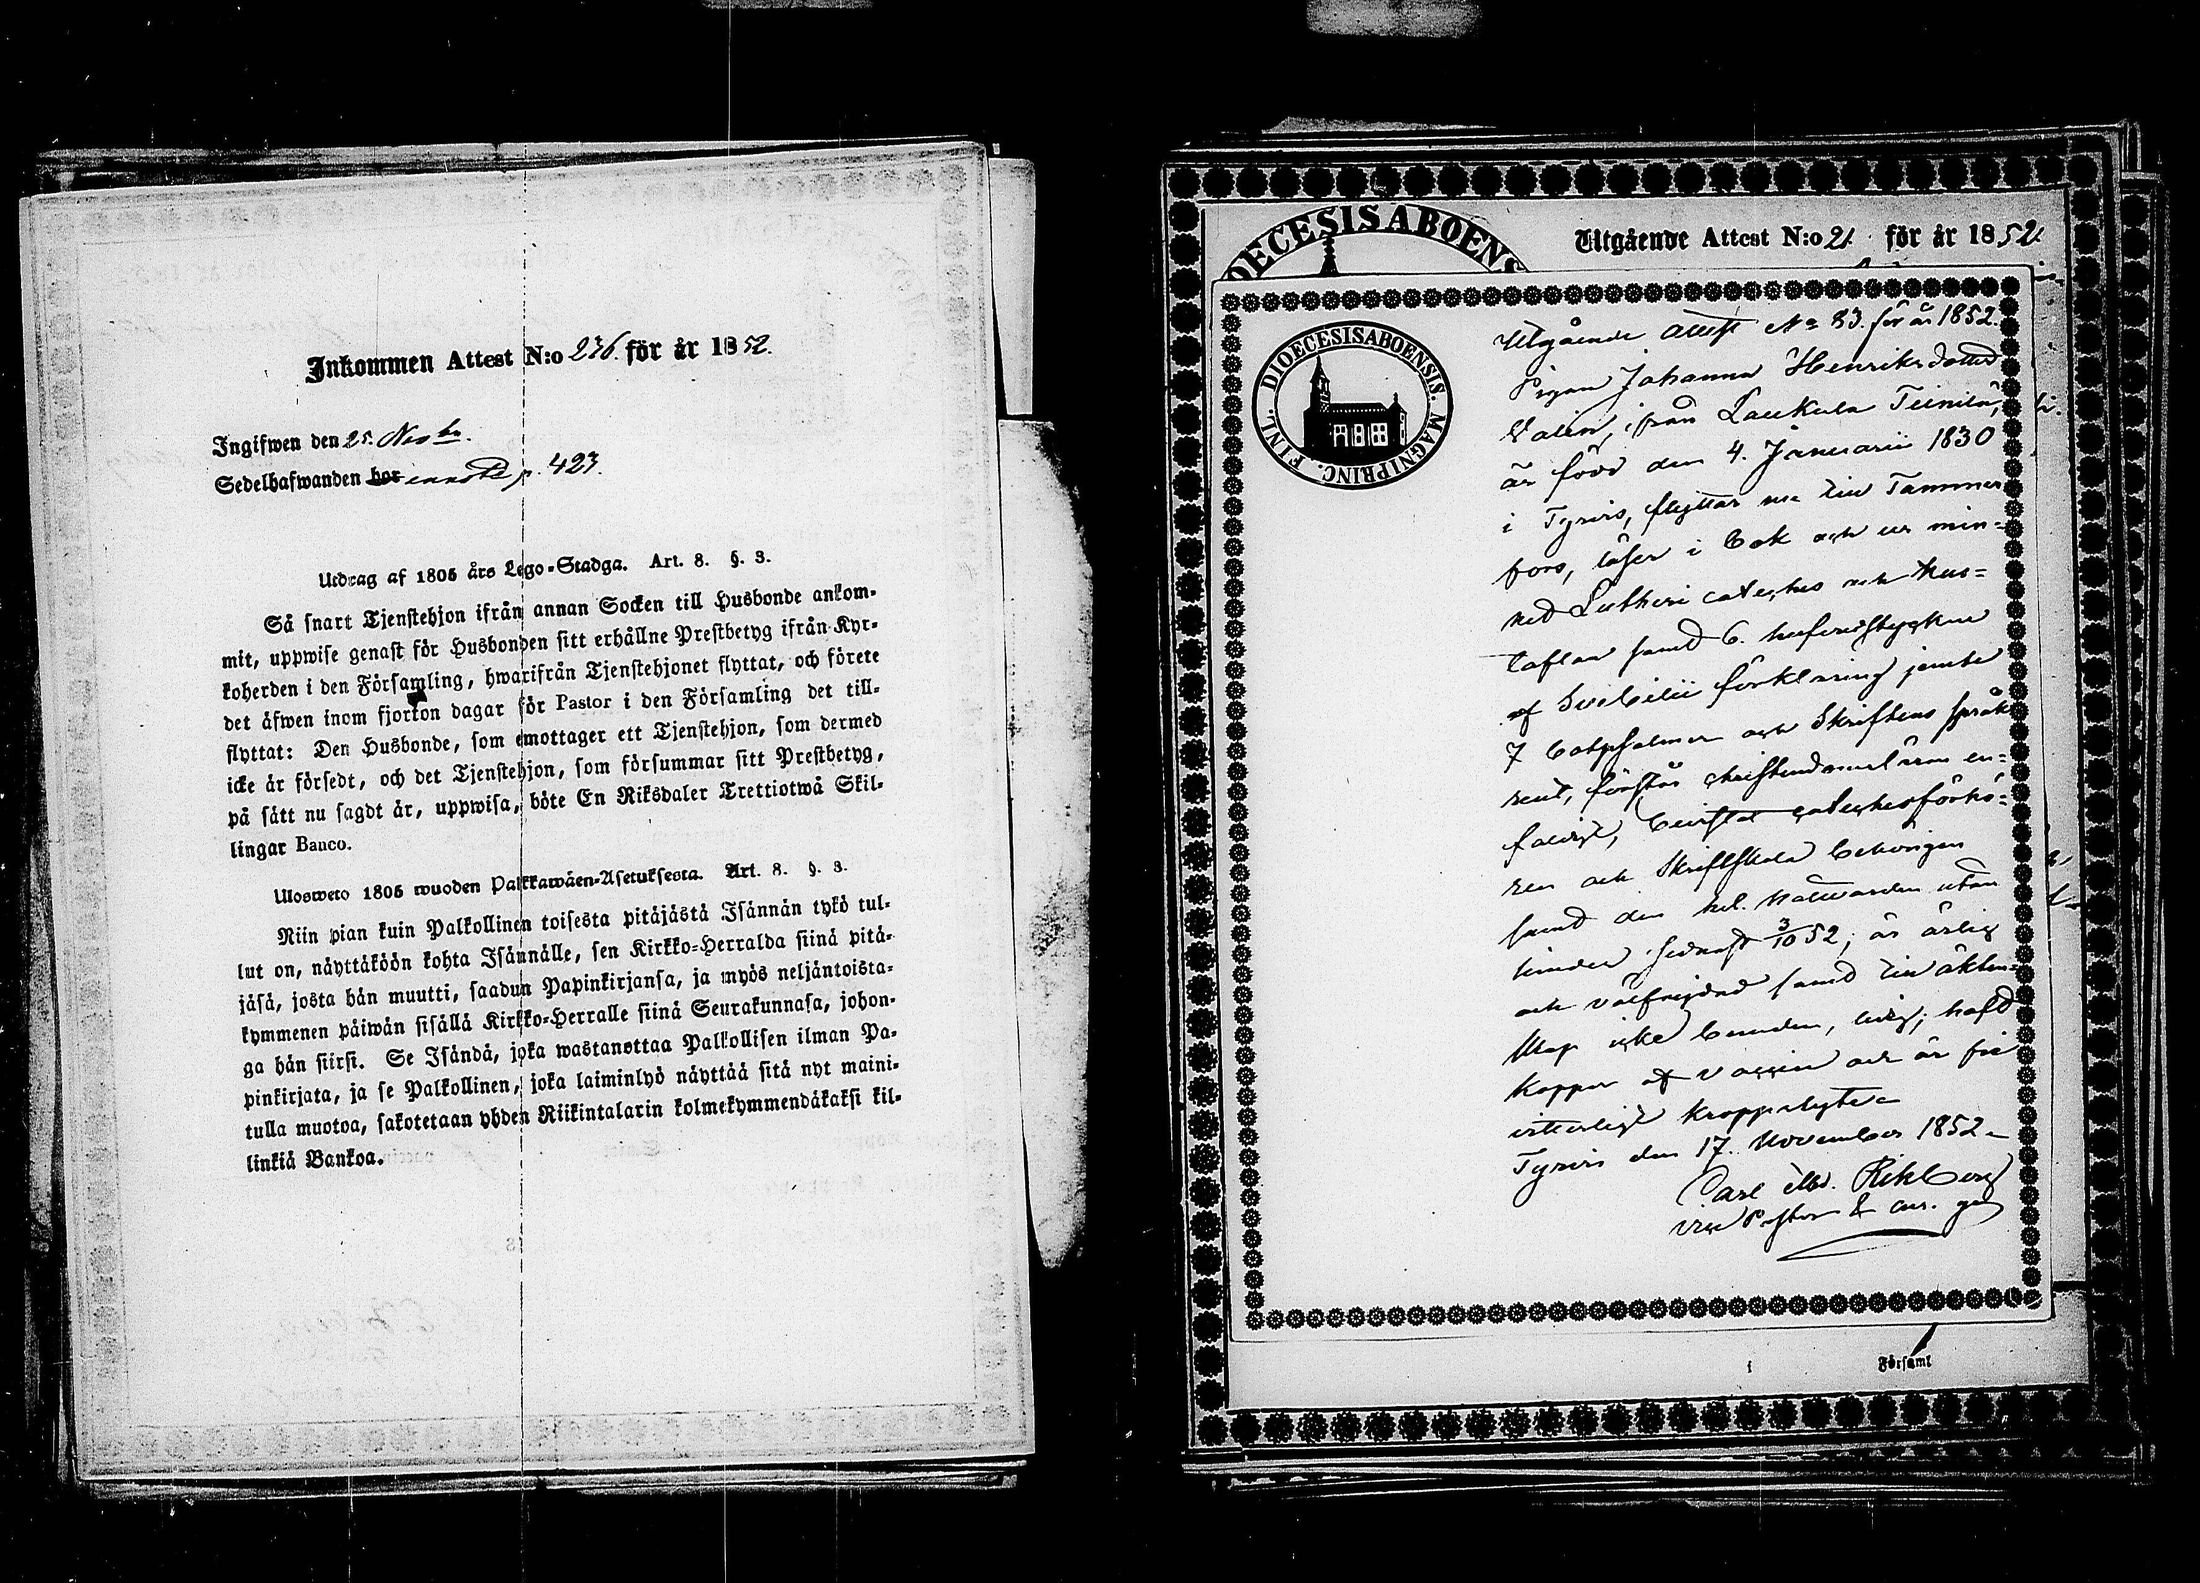 Inkommen Attest N:o 236. för år 1852.
Ingifwen den 25. Novbr.
Sedelhafwanden bor p. 423.
Utdrag af 1805 års Lego-Stadga. Art. 8. §. 3.
Så snart Tjenstehjon ifrån annan Socken till Husbonde ankom-
mit, uppwise genast för Husbonden sitt erhållne Prestbetyg ifrån Kyr-
koherden i den Församling, hwarifrån Tjenstehjonet flyttat, och förete
det åfwen inom fjorton dagar för Pastor i den Församling det till-
flyttat: Den Husbonde, som emottager ett Tjenstehjon, som dermed
icke år försedt, och det Tjenstehjon, som försummar sitt Prestbetyg,
på sått nu sagdt år, uppwisa, böte En Riksdaler Trettiotwå Skil-
lingar Banco.
Ulosweto 1805 wuoden Palkkawäen-Asetuksesta. Art. 8. §. 3.
Niin pian kuin Palkollinen toisesta pitäjästä Isännän tykö tul-
lut on, näyttäköön kohta Isännälle, sen Kirkko-Herralda siinä pitä-
jäsä, josta hän muutti, saadun Papinkirjansa, ja myös neljäntoista-
kymmenen päiwän sisällä Kirkko-Herralle siinä Seurakunnasa, johon-
ga hän siirsi. Se Isändä, joka wastanottaa Palkollisen ilman Pa-
pinkirjata, ja se Palkollinen, joka laiminlyö näyttää sitä nyt maini-
tulla muotoa, sakotetaan yhden Riikintalarin kolmekymmendäkaksi kil-
linkiä Bankoa.
Utgående Attest N:o 21. för år 1852.
DIOECESIS ABOENS
FINL. DIOECESIS ABOENSIS. MAGNI PRINC.
Utgående attest No 83. för år 1852.
Pigan Johanna Henriksdotter
Valin, ifrån Laukula Teinilä,
är född den 4. Januarii 1830
i Tyrvis, flyttar nu till Tammer-
fors, läser i bok och ur min-
ned Lutheri cateches och hus-
taflan samt 6. hufvudstycken
af Svebilii förklaring jemte
7 botpsalmer och Skriftens språk
rent, förstår christendomsläran en-
faldigt, bevistat catechesförhö-
ren och Skriftskola behörigen
samt den hel. nattvarden utan
hinder sednast 3/10 52; är ärlig
och välfrejdad samt till äkten-
skap icke bunden, ledig; haft
koppor af vaccin och är fri
vitterligt kroppslyte.
Tyrvis den 17. November 1852.
Carl Rikberg
vice Pastor &
Församl